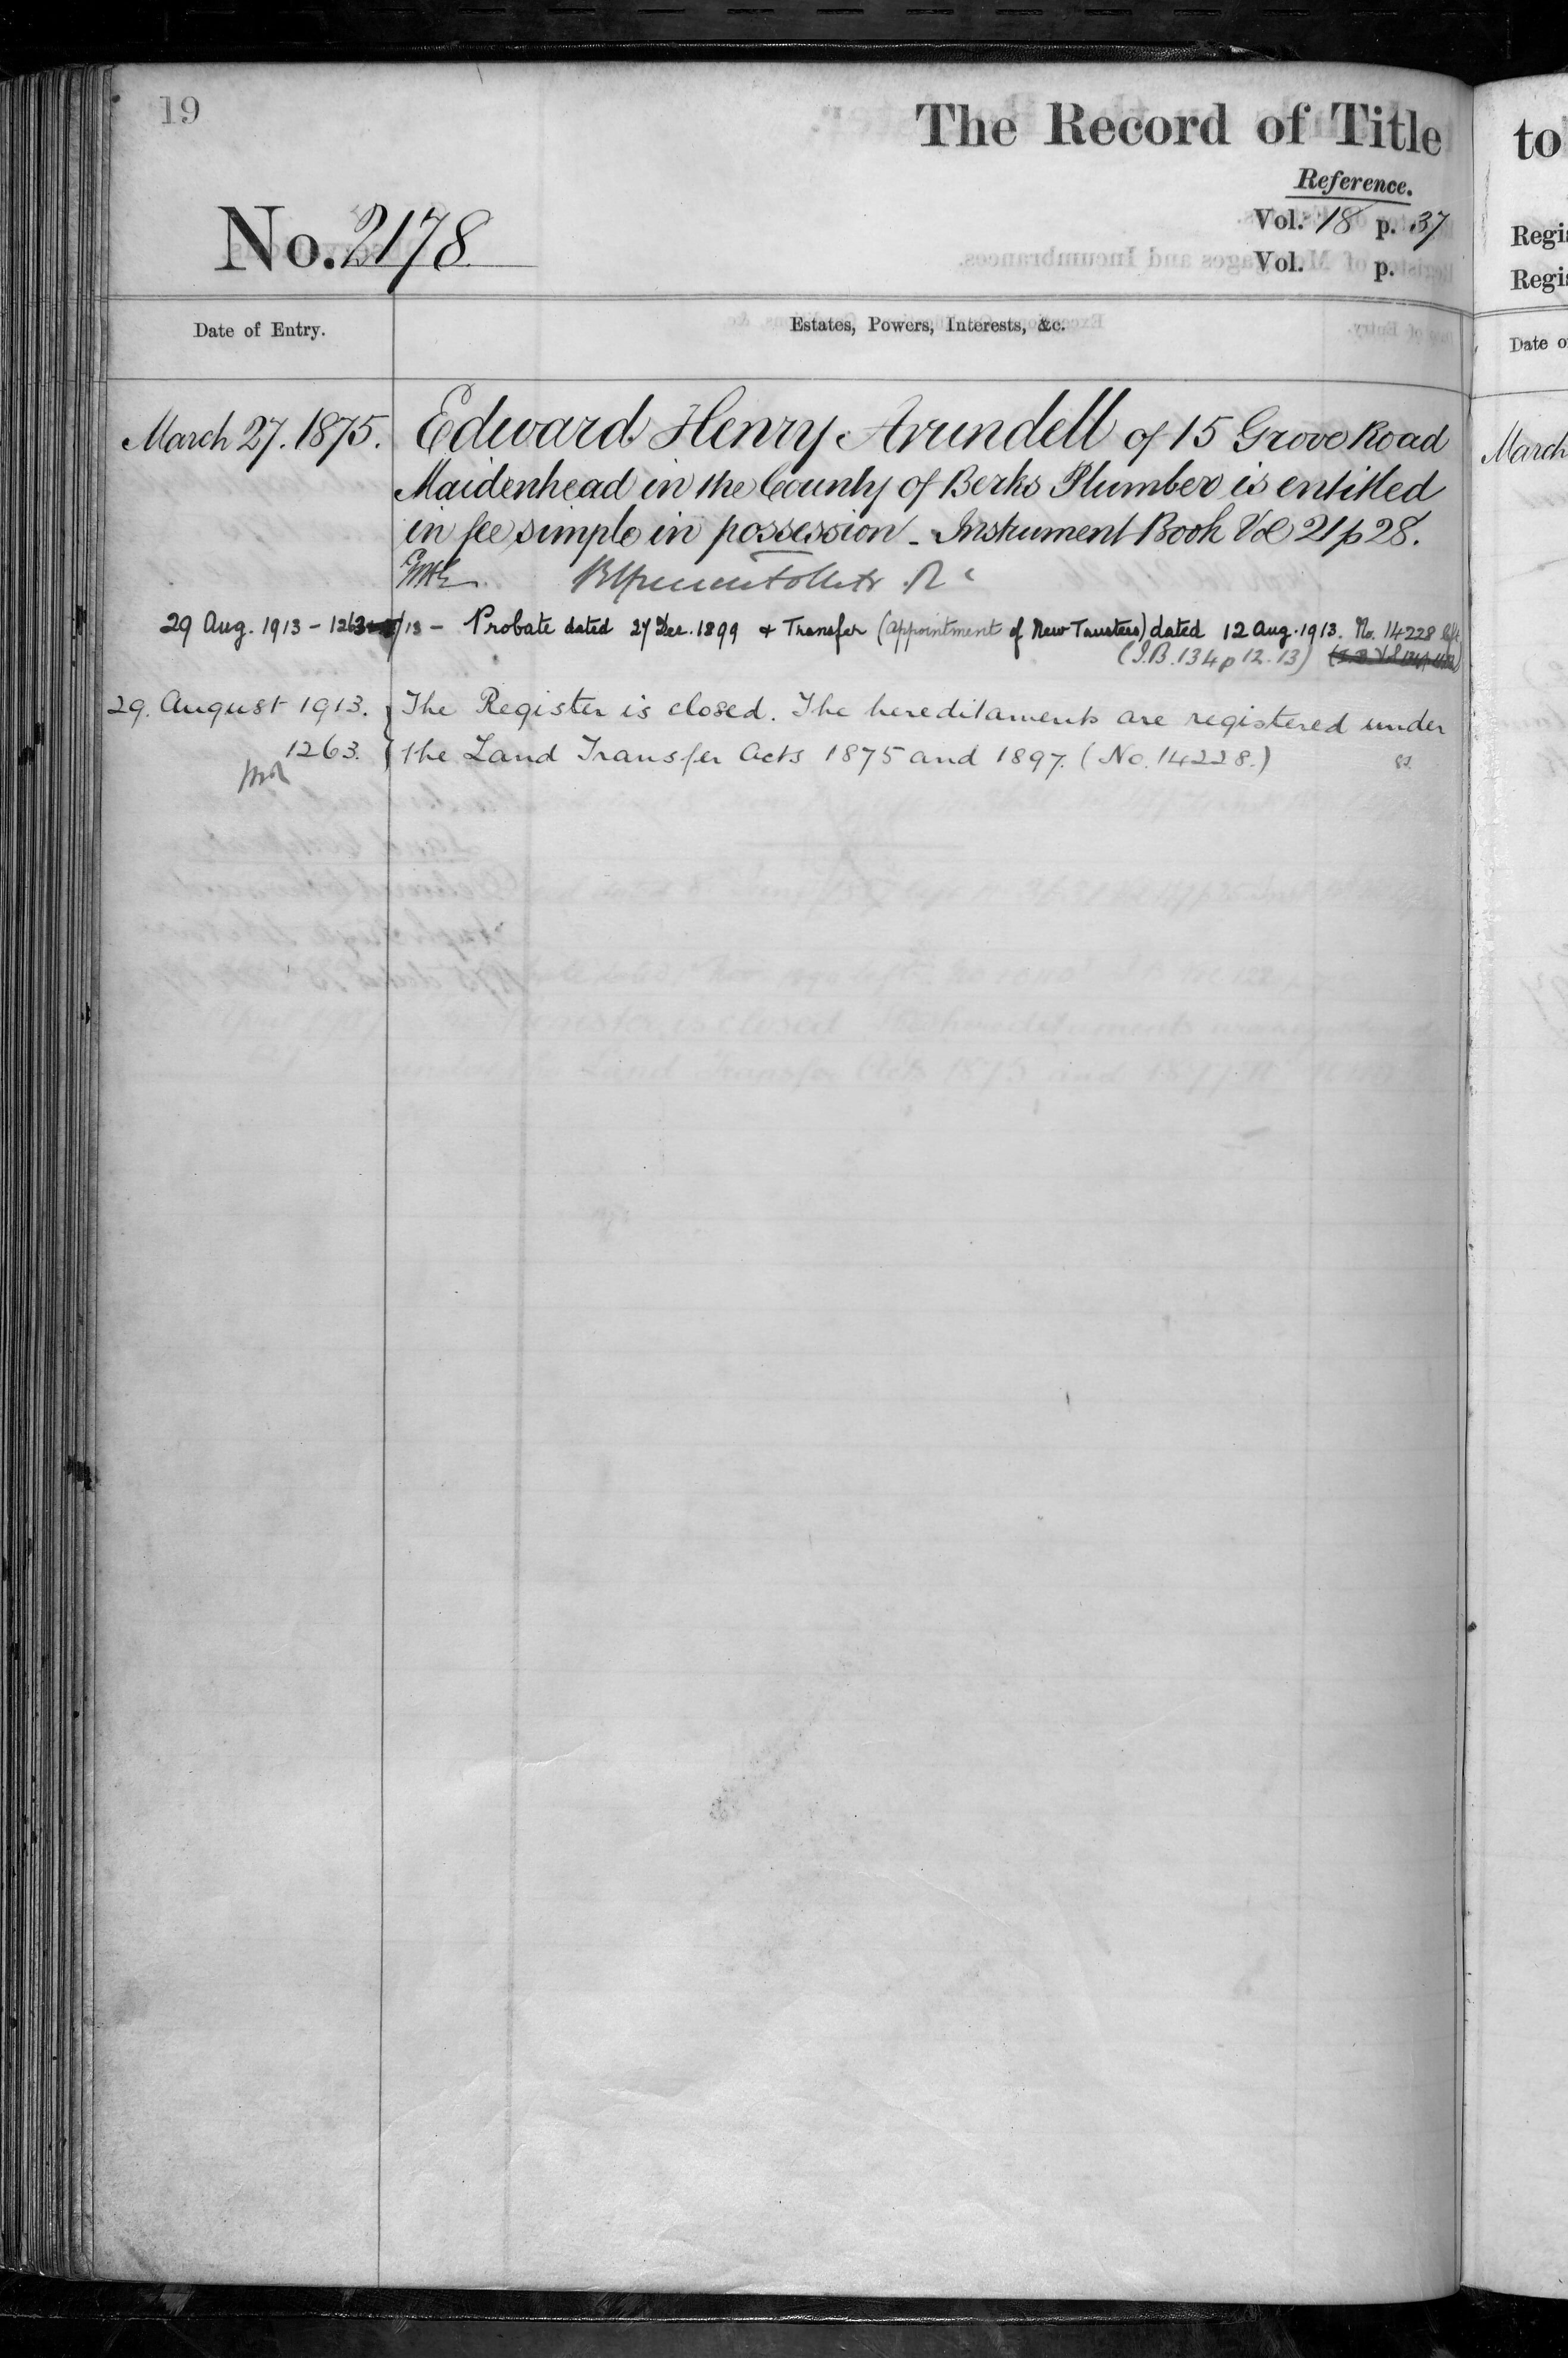 19
The Record of Title
Reference.
No. 2178
Vol. 18 p. 37
Vol. p.
Date of Entry.
Estates, Powers, Interests, &c.
March 27. 1875.
Edward Henry Arundell of 15 Grove Road
Maidenhead in the County of Berks Plumber is entitled
in fee simple in possession - Instrument Book Vol 21 p 28.
29 Aug. 1913 - 1263/13 - Probate dated 27 Dec. 1899 & Transfer (Appointment of New Trustees) dated 12 Aug. 1913. No. 14228
(I.B. 134 p 12. 13)
29. August 1913. The Register is closed. The hereditaments are registered under
1263. the Land Transfer Acts 1875 and 1897. (No. 14228.)
to
Regis
Regis
Date o
March